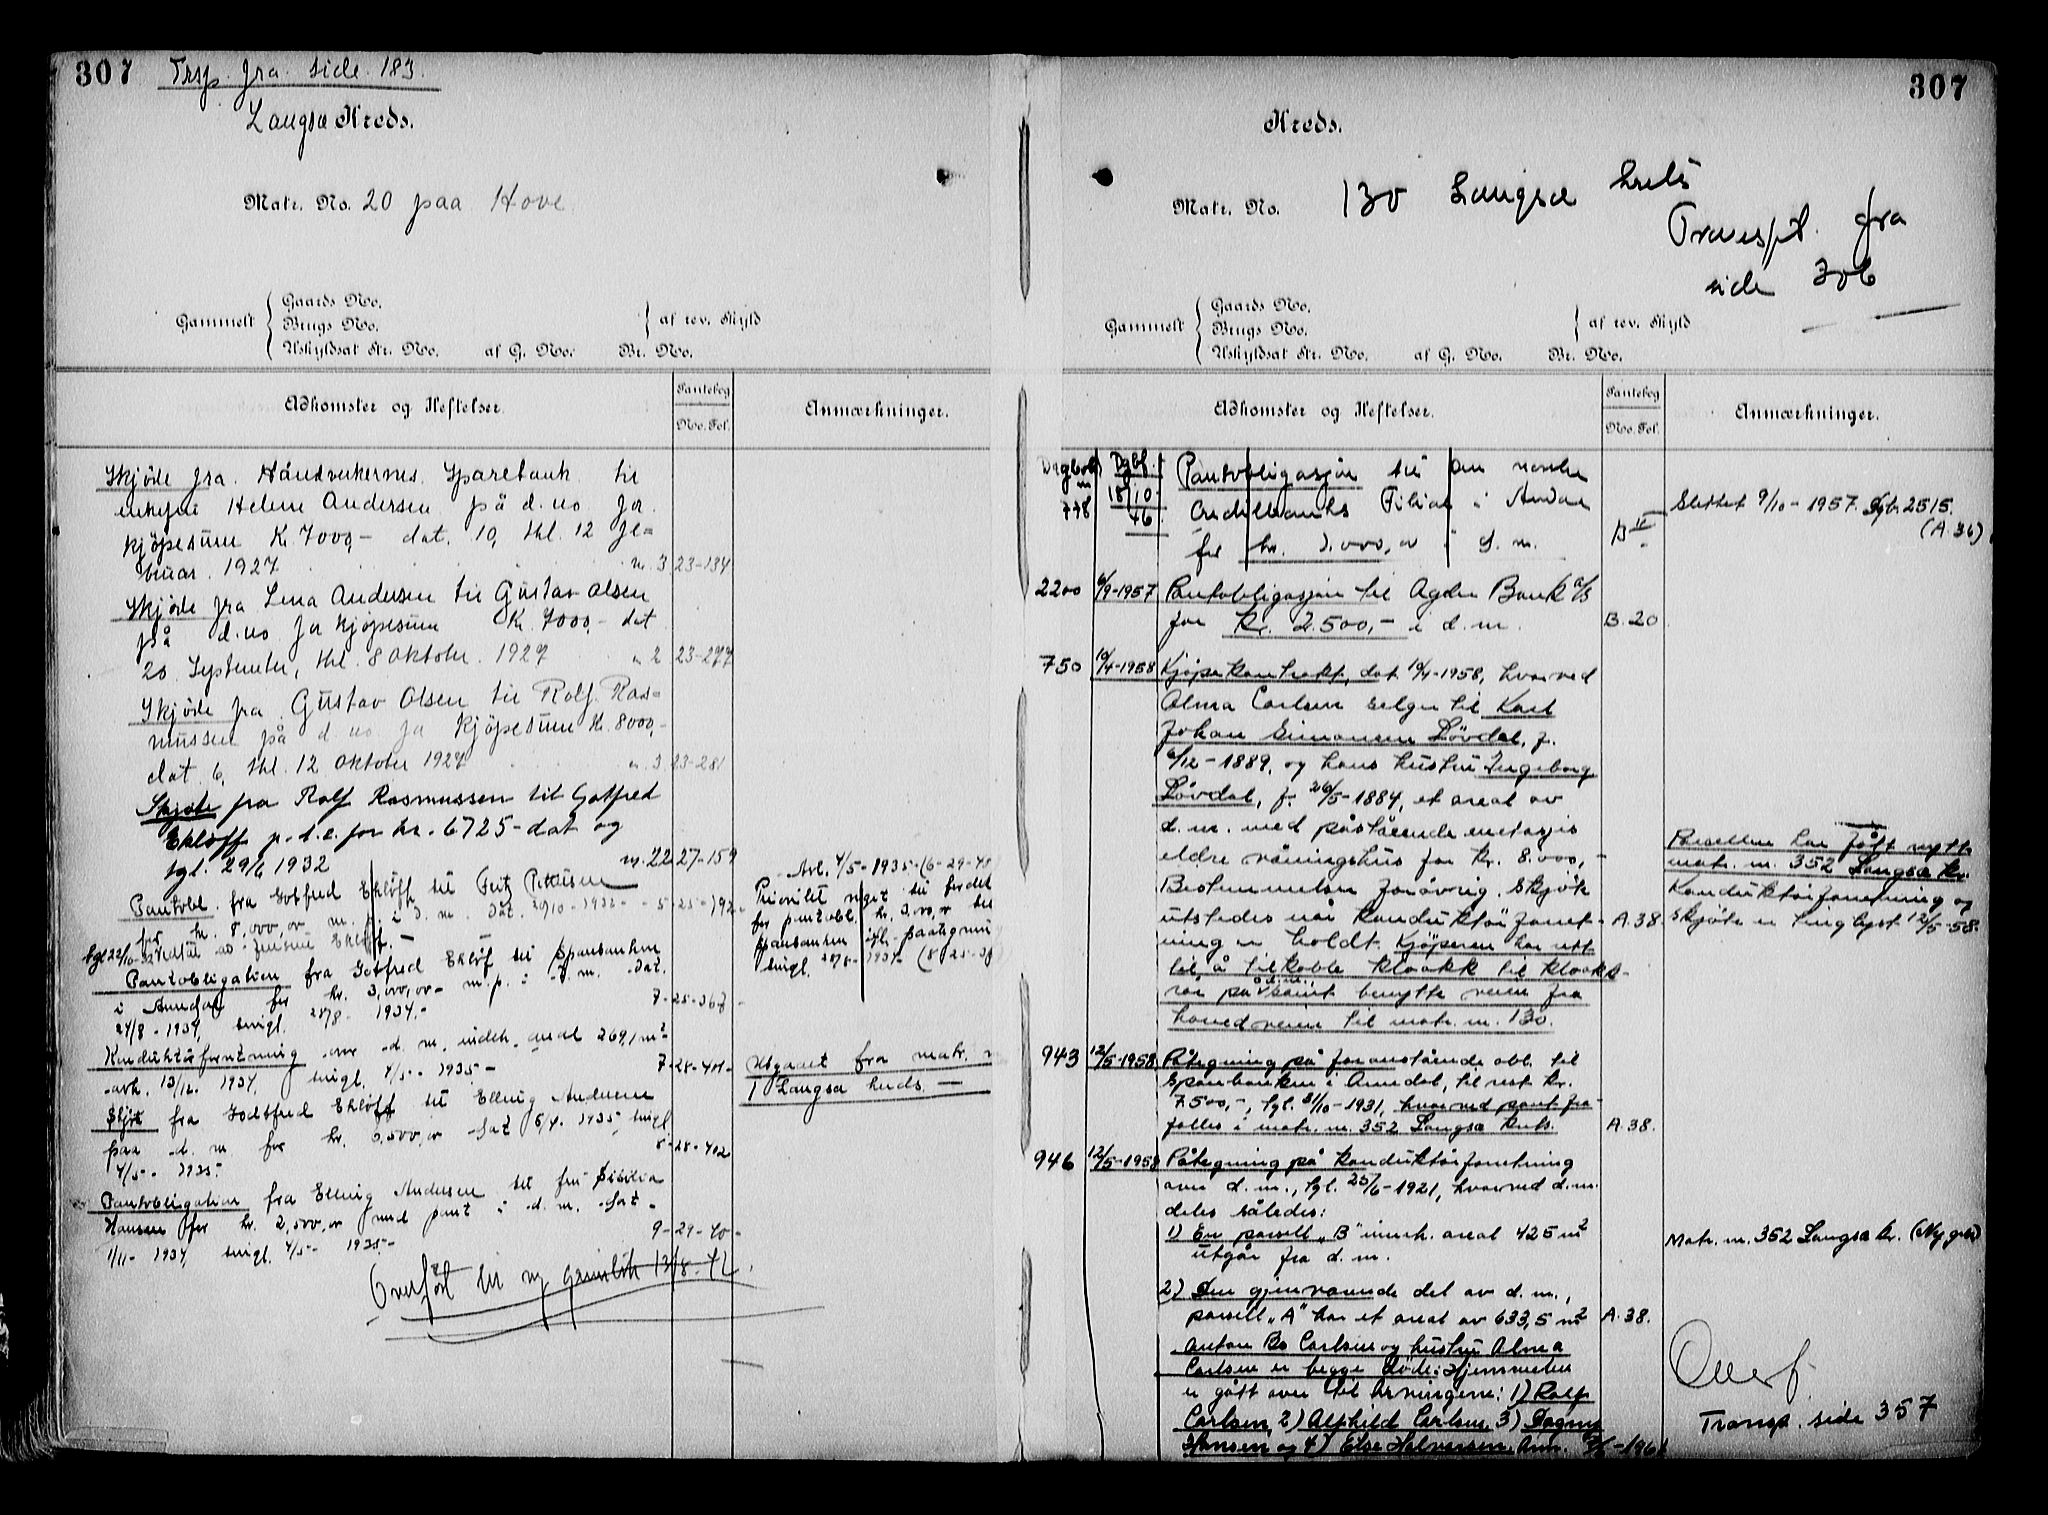 307 Trsp. fra side 183.
Langsæ Kreds.
Matr. No. 20 paa Hove
Gammelt
Gaards No.
Brugs No.
Uskyldsat Str. No. af G. No. Br. No.
af rev. Skyld
Adkomster og Heftelser.
Pantebog
No. Fol.
Anmærkninger.
Skjöde fra Håndverkernes Sparebank til
enkefru Helene Andersen på d. no. for
kjöpesum Kr. 7000,- dat. 10, thl. 12 fe=
bruar. 1927 nr. 3 23-134
Skjöde fra Lina Andersen til Gustav Olsen
på d. no for kjöpesum Kr. 7000,- dat
20 September, thl. 8 Oktober. 1927 " 2 23-277
Skjöde fra Gustav Olsen til Rolf Ras=
mussen på d. no for kjöpesum kr. 8000,-
dat. 6, thl. 12 oktober 1927 " 3 23-281
Skjöte fra Rolf Rasmussen til Gotfred
Eklöff p. d. e. for kr. 6725- dat og
tgl. 29/6 1932 nr. 22 27-159
Pantobl. fra Gotfred Eklöff til
for kr. 8,000,00 m. p. i d. m. dat. 20/10-1932- 5-25-192-
Pantobligation fra Gotfred Eklöf til Sparbanken
i Arendal for kr. 3,000,00- m. p. i d. m. dat.
24/8-1934, tingl. 28/8- 1934.- 7-25-367-
Konduktörforretning over d. m. indeh. areal 269,1 m²
avh. 13/12. 1934. tingl. 4/5- 1935- 7-28-401-
Skjöt fra Godtfred Eklöff til Elling Andersen
paa d. m for kr. 5,500,00 dat 5/4. 1935, tingl
4/5- 1935- 8-28-402
Pantobligation fra Elling Andersen til fru
Hansen for kr. 2,500,00 med pant i d. m. dat-
1/11- 1934, tingl. 4/5- 1935- 9-29-40-
Avl. 4/5-1935-(6-29-48)
Prioritet veget til fordel
for pantobl. kr. 3,000,00 til
Sparbanken ifl. paategning
tingl. 28/8-1934- (8-25-
Utgaaet fra matr. n
1 Langsæ kreds. -
Overfört til ny grunnbok 13/8.42.
307
Kreds.
Matr. No. 130 Langsæ krets
Transpt. fra
side 306
Gammelt
Gaards No.
Brugs No.
Uskyldsat Str. No. af G. No. Br. No.
af rev. Skyld
Adkomster og Heftelser.
Pantebog
No. Fol.
Anmærkninger.
Dagbok nr 778
Dgbf. 18/10-46.
Pantobligasjon til Den norske
Creditbanks Filial i Arendal
for kr. 3.000,00 i d. m.
Slettet 9/10-1957. Dgb. 2515.
(A. 36)
2200 6/9-1957 Pantobligasjon til Agder Bank A/S
for kr. 2.500,- i d. m. B. 20
750 10/4-1958 Kjöpekontrakt, dat. 10/4-1958, hvorved
Alma Carlsen selger til Karl
Johan Simonsen Lövdal, f.
6/12-1889, og hans hustru Ingeborg
Lövdal, f. 26/5-1884, et areal av
d. m. med påstående enetasjes
eldre våningshus for kr. 8.000,-
Bestemmelser forövrig. Skjöte
utstedes når konduktörforret-
ning er holdt. Kjöperen har rett
til å tilkoble kloakk til kloakk-
rör på d. m. samt benytte veien fra
hovedveien til matr. nr. 130. A. 38.
Parsellen har fått nytt
matr. nr. 352 Langsæ kr.
Konduktörforretning og
skjöte er tinglyst 12/5-58.
943 12/5-1958 Påtegning på foranstående obl. til
Sparebanken i Arendal, til rest kr.
7.500,-, tgl. 31/10-1931, hvorved pant fra-
falles i matr. nr. 352 Langsæ krets. A. 38.
946 12/5-1958 Påtegning på konduktörforretning
over d. m., tgl. 25/6-1921, hvorved d. m.
deles således:
1) En parsell „B" inneh. areal 425 m²
utgår fra d. m.
Matr. nr. 352 Langsæ kr. (Ny grb)
2) Den gjenværende del av d. m.,
parsell „A" har et areal av 633,5 m² A. 38.
Anton Bs Carlsen og hustru Alma
Carlsen er begge döde. Hjemmelen
er gått over til arvingene: 1) Rolf
Carlsen, 2) Alfhild Carlsen, 3) Dagny
Hansen og 4) Else Halvorsen. Anm.
Overf.
Transp. side 357